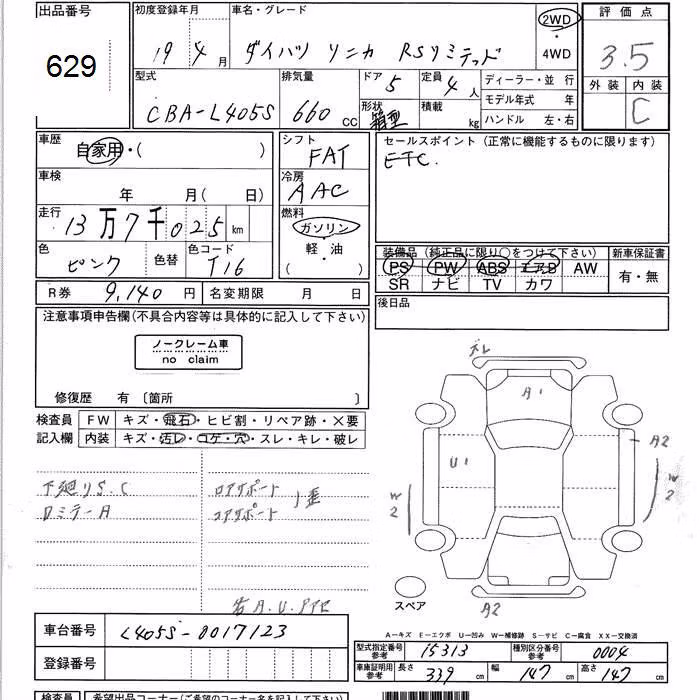 出品番号
629
初度登録年月
19年4月
車名・グレード
ダイハツ ソニカ RSリミテッド
2WD
・
4WD
評価点
3.5
外装 内装
C
型式
CBA-L405S
排気量
660 CC
ドア 5
形状 箱型
定員 4 人
積載 kg
ディーラー・並 行
モデル年式 年
ハンドル 左・右
車歴
自家用・( )
シフト
FAT
セールスポイント (正常に機能するものに限ります)
ETC.
車検
年 月( 日)
冷房
AAC
走行
13万7千025 km
燃料
ガソリン
・
軽・油
( )
色
ピンク
色替
色コード
T16
装備品 (純正品に限り○をつけて下さい)
PS PW ABS エアB AW
SR ナビ TV カワ
新車保証書
有・無
R券 9,140 円
名変期限 月 日
後日品
注意事項申告欄(不具合内容等は具体的に記入して下さい)
ノークレーム車
no claim
修復歴 有 〔箇所 〕
検査員
記入欄
FW キズ・飛石・ヒビ割・リペア跡・×要
内装 キズ・汚レ・コゲ・穴・スレ・キレ・破レ
下廻りS.C
ロアサポート
コアサポート
ズレ
A1
U1
A2
W2
W2
スペア
A2
A―キズ E―エクボ U―凹み W―補修跡 S―サビ C―腐食 XX―交換済
車台番号
L405S-0017123
登録番号
型式指定番号
参考
15313
種別区分番号
参考
0004
車庫証明用
参考
長さ 339 cm
幅 147 cm
高さ 147 cm
検査員
希望出品コーナー(ご希望のコーナー名を記入下さい)